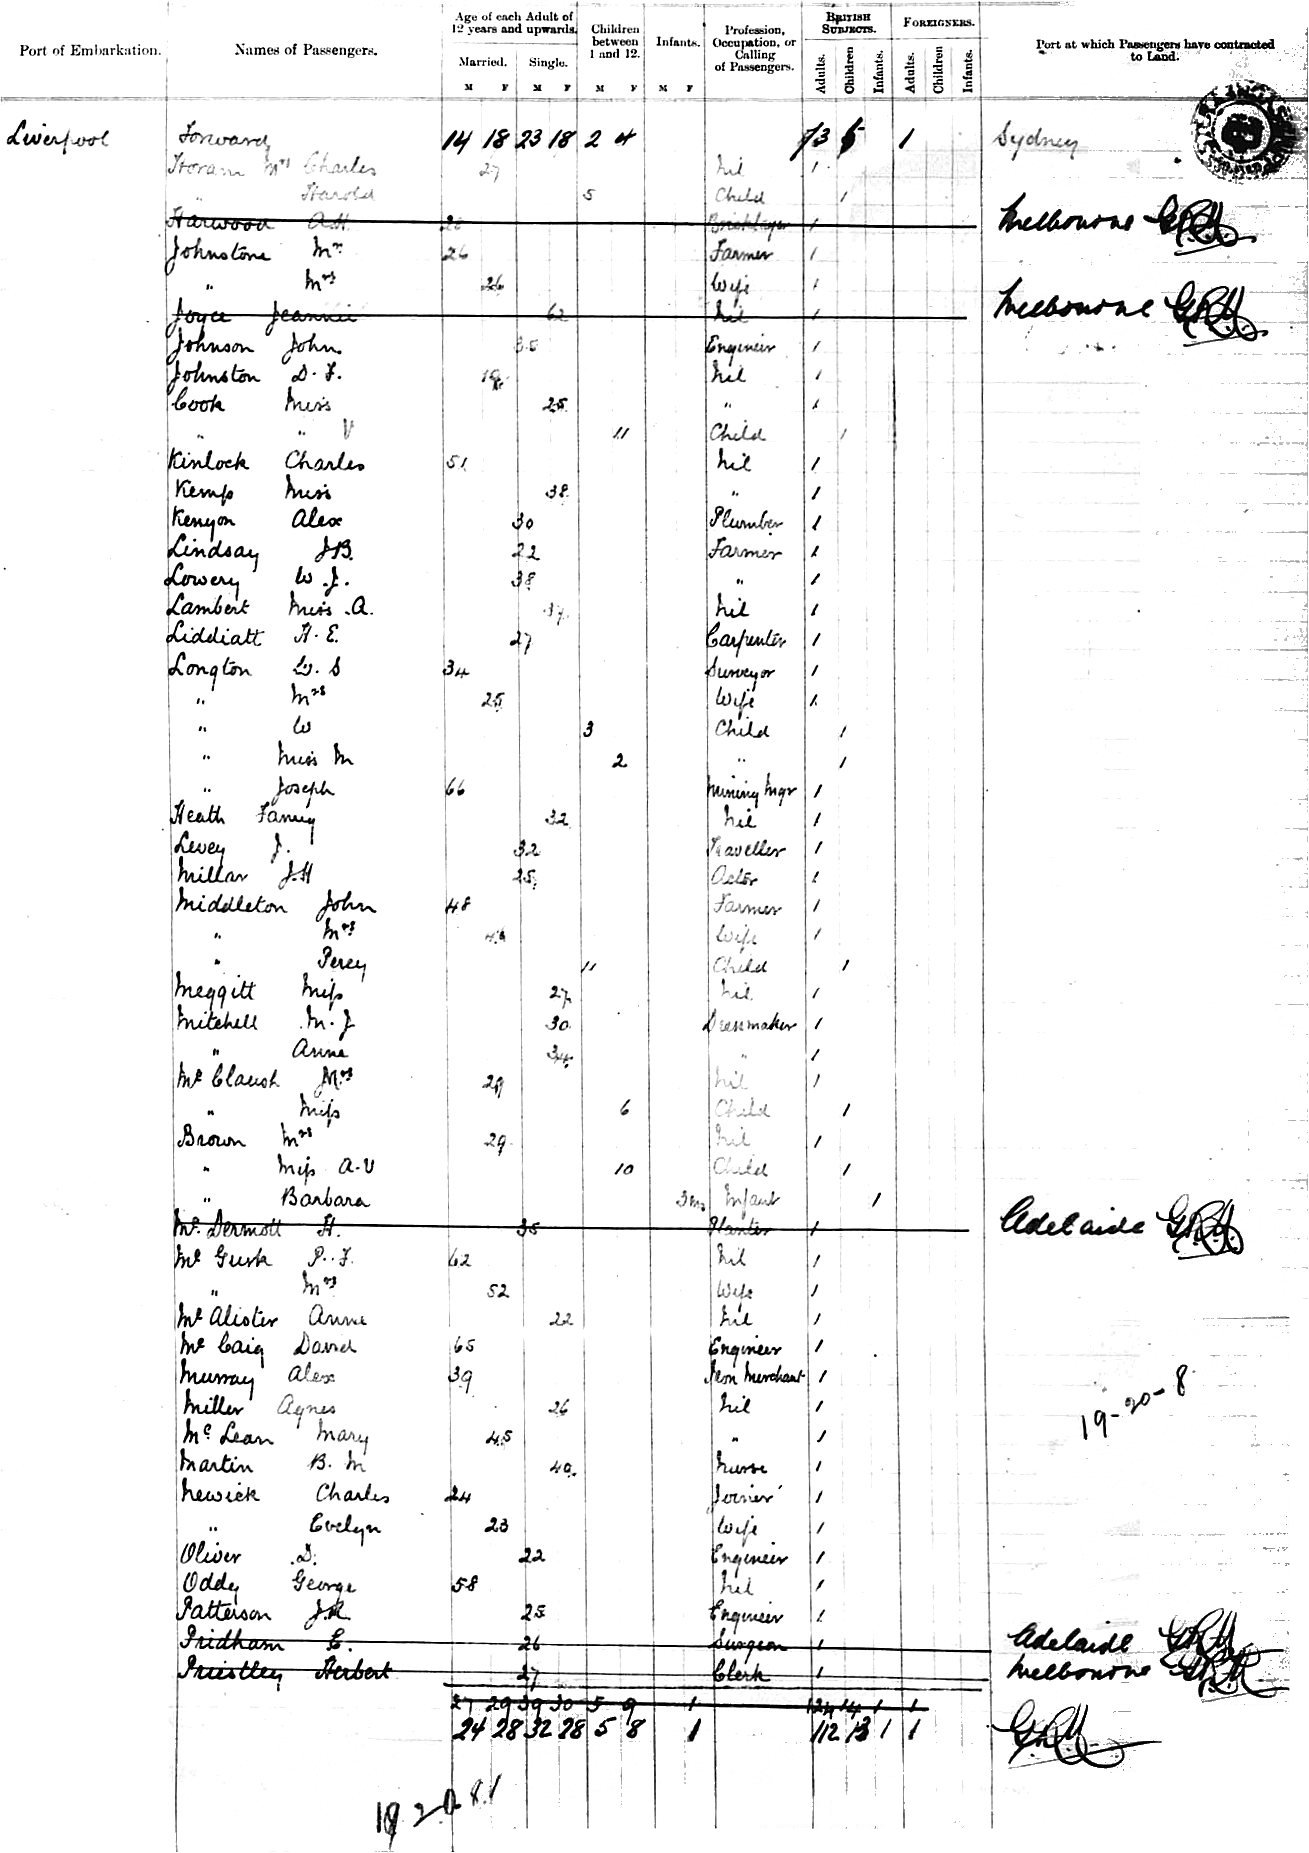 Port of Embarkation. Names of Passengers. Age of each Adult of 12 years and upwards. Children between 1 and 12. Infants. Profession, Occupation, or Calling of Passengers. BRITISH SUBJECTS. FOREIGNERS. Port at which Passengers have contracted to Land.
Married. Single. Adults. Children Infants. Adults. Children Infants.
M F M F M F M F
Liverpool Forward 14 18 23 18 2 4 73 1 Sydney
Horam Mrs Charles 27 Nil 1
" Harold 5 Child 1
Harwood A.H. Bricklayer 1 Melbourne
Johnstone Mr. 26 Farmer 1
" Mrs 26 Wife 1
Joyce Jeannie 62 Nil 1 Melbourne
Johnson John 35 Engineer 1
Johnston D. F. Nil 1
Cook Miss 25 " 1
" " V 11 Child 1
Kinlock Charles 51 Nil 1
Kemp Miss 38 " 1
Kenyon Alex 30 Plumber 1
Lindsay J.B. 22 Farmer 1
Lowery W. J. 38 " 1
Lambert Miss A. 37 Nil 1
Liddiatt H. E. 27 Carpenter 1
Longton W. S 34 Surveyor 1
" Mrs 25 Wife 1
" W 3 Child 1
" Miss M 2 " 1
" Joseph 66 Mining Mgr 1
Heath Fanny 32 Nil 1
Levey J. 32 Traveller 1
Millar J.H 25 Actor 1
Middleton John 48 Farmer 1
" Mrs Wife 1
" Percy 11 Child 1
Meggitt Miss 27 Nil 1
Mitchell M. J 30 Dressmaker 1
" Anne 34 " 1
Mc Claush Mrs 29 Nil 1
" Miss 6 Child 1
Brown Mrs 29 Nil 1
" Miss A.V 10 Child 1
" Barbara 3 ms Infant 1
Mc Dermott H. 35 Planter 1 Adelaide
Mc Gurk P. F. 62 Nil 1
" Mrs 52 Wife 1
Mc Alister Anne 22 Nil 1
Mc Caig David 65 Engineer 1
Murray Alex 39 Iron Merchant 1
Miller Agnes 26 Nil 1
Mc Lean Mary 45 " 1 19-20-8
Martin B. M 40 Nurse 1
Newick Charles 24 Joiner 1
" Evelyn 23 Wife 1
Oliver D. 22 Engineer 1
Oddy George 58 Nil 1
Patterson J.R. 25 Engineer 1
Pridham C. 26 Surgeon 1 Adelaide
Priestley Herbert 27 Clerk 1 Melbourne
27 29 39 30 5 9 1 124 14 1 1
24 28 32 28 5 8 1 112 13 1 1